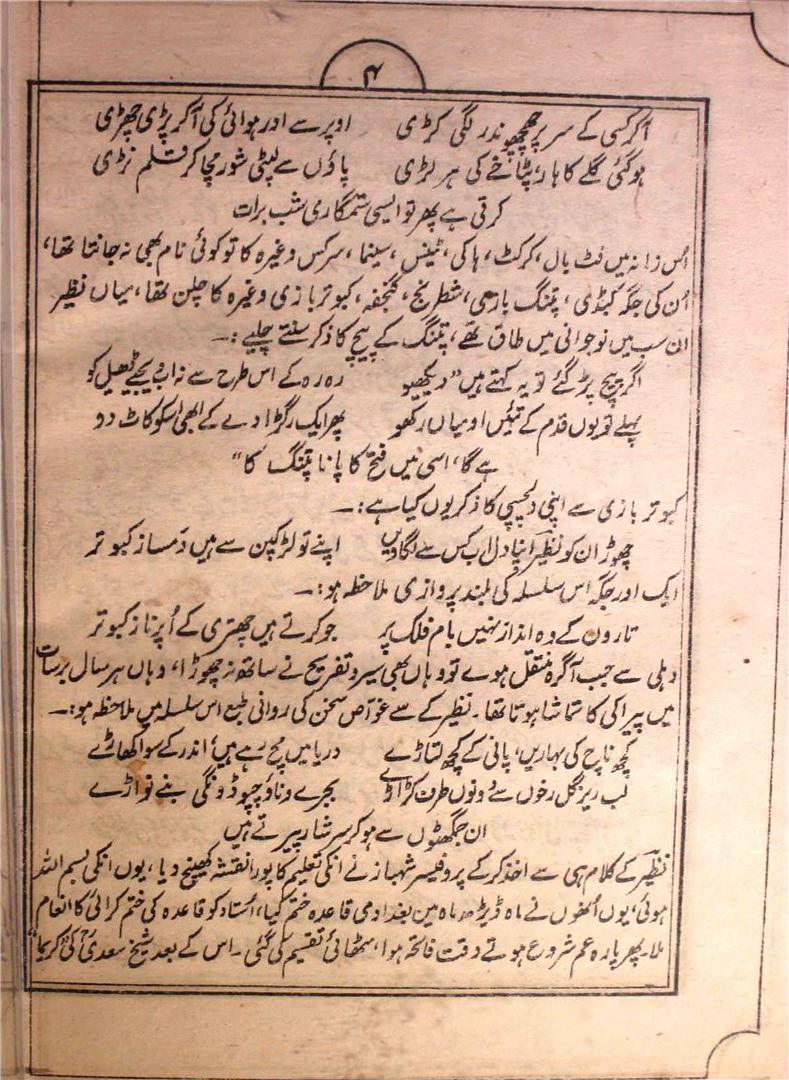 ۴
آکر کسی کے سر پر چھچھوندر لگی کڑی اوپر سے اور ہوائی کی آکر پڑی چھڑی
ہوگئی گلے کا ہار، پٹاخے کی ہر لڑی پاؤں سے لپٹی شور مچا کر قلم تڑی
کرتی ہے پھر تو ایسی ستمگاری شب برات
اُس زمانہ میں فٹ بال، کرکٹ، ہاکی، ٹینس، سینما، سرکس وغیرہ کا تو کوئی نام بھی نہ جانتا تھا،
اُن کی جگہ کبڈی، پتنگ بازی، شطرنج، گنجفہ، کبوتر بازی وغیرہ کا چلن تھا، میاں نظیر
ان سب میں نوجوانی میں طاق تھے، پتنگ کے پیچ کا ذکر سنتے چلیے :۔
اگر پیچ پڑ گئے تو یہ کہتے ہیں "دیکھیو رہ رہ کے اس طرح سے نہ اب دیجے ڈھیل کو
پہلے تو یوں قدم کے تئیں او میاں رکھو پھر ایک رگڑا دے کے ابھی اسکو کاٹ دو
ہے گا، اسی میں فتح کا پانا پتنگ کا"
کبوتر بازی سے اپنی دلچسپی کا ذکر یوں کیا ہے :۔
چھوڑ ان کو نظیر اپنا دل اب کس سے لگادیں اپنے تو لڑکپن سے ہیں دَمساز کبوتر
ایک اور جگہ اس سلسلہ کی بلند پروازی ملاحظہ ہو :۔
تاروں کے وہ انداز نہیں بام فلک پر جو کرتے ہیں چھتری کے اُپر ناز کبوتر
دہلی سے جب آگرہ منتقل ہوے تو وہاں بھی سیر و تفریح نے ساتھ نہ چھوڑا، وہاں ہر سال برسات
میں پیراکی کا تماشا ہوتا تھا۔ نظیر کے سے غوّاص سخن کی روانی طبع اس سلسلہ میں ملاحظہ ہو :۔
کچھ ناچ کی بہاریں، پانی کے کچھ لتاڑے دریا میں مچ رہے ہیں، اندر کے سو اکھاڑے
لب ریز گل رخوں سے دونوں طرف کڑاڑے بجرے و ناؤ چپو ڈونگی بنے نواڑے
ان جمگھٹوں سے ہو کر سرشار پیرتے ہیں
نظیر کے کلام ہی سے اخذ کرکے پروفیسر شہباز نے انکی تعلیم کا پورا نقشہ کھینچ دیا، یوں انکی بسم اللہ
ہوئی، یوں اُنھوں نے ماہ ڈیڑھ ماہ میں بغدادی قاعدہ ختم کیا، اُستاد کو قاعدہ کی ختم کرائی کا انعام
ملا۔ پھر پارہ عم شروع ہوتے وقت فاتحہ ہوا، مٹھائی تقسیم کی گئی۔ اس کے بعد شیخ سعدی کی "کریما"